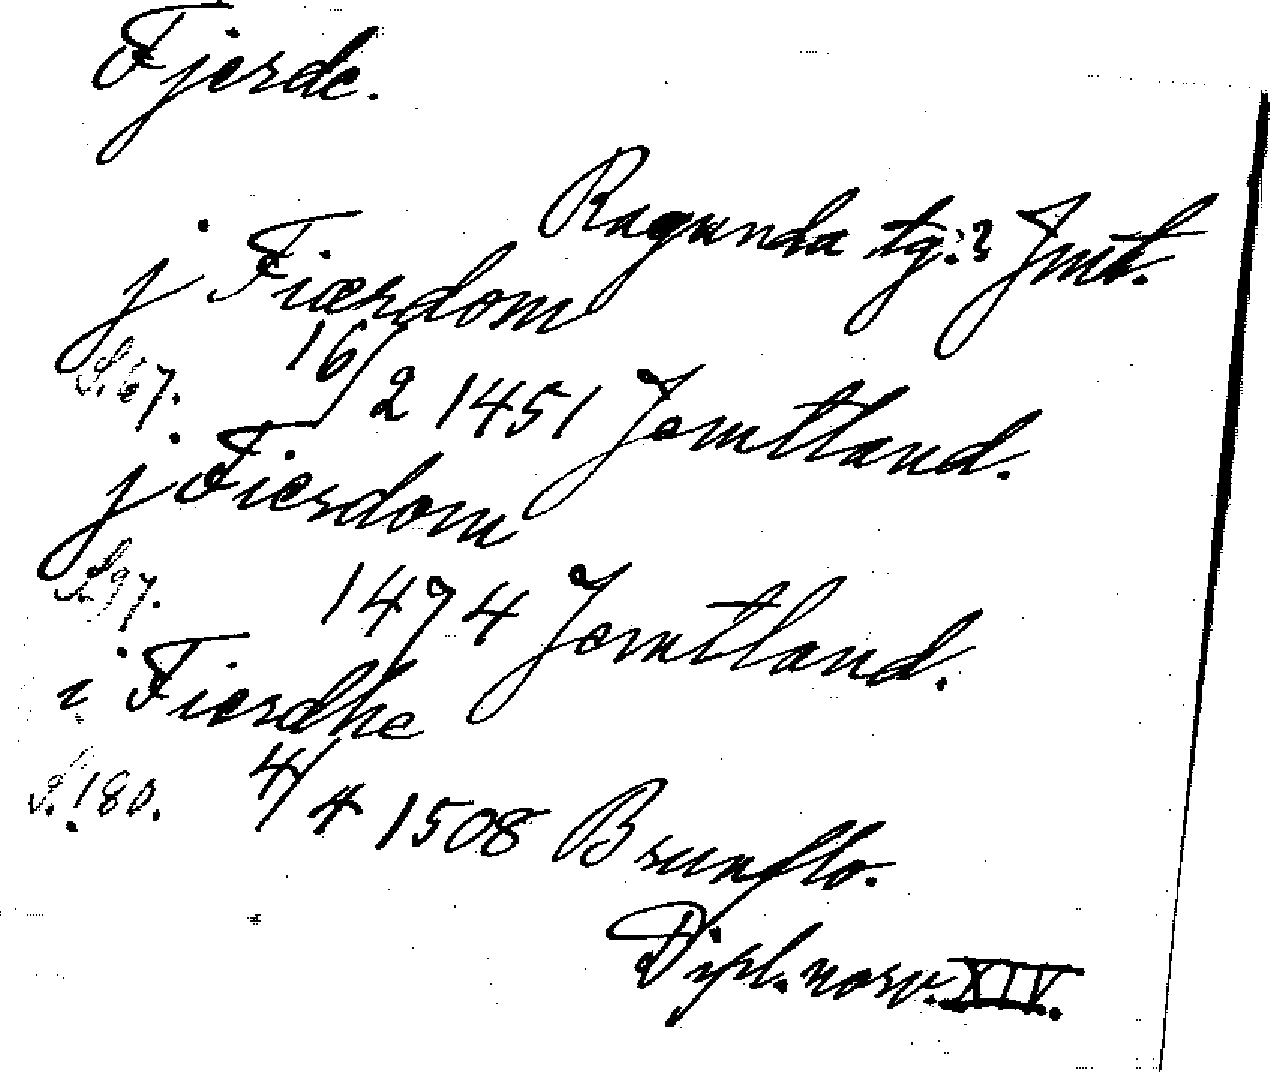 Fjerde.
Ragunda tg.? Jmt.
j Fiærdom
S. 67. 16/2 1451 Jemtland.
j Fierdom
S. 97. 1474 Jemtland.
i Fierdhe
S. 180. 4/4 1508 Brunflo.
Dipl. norv. XIV.